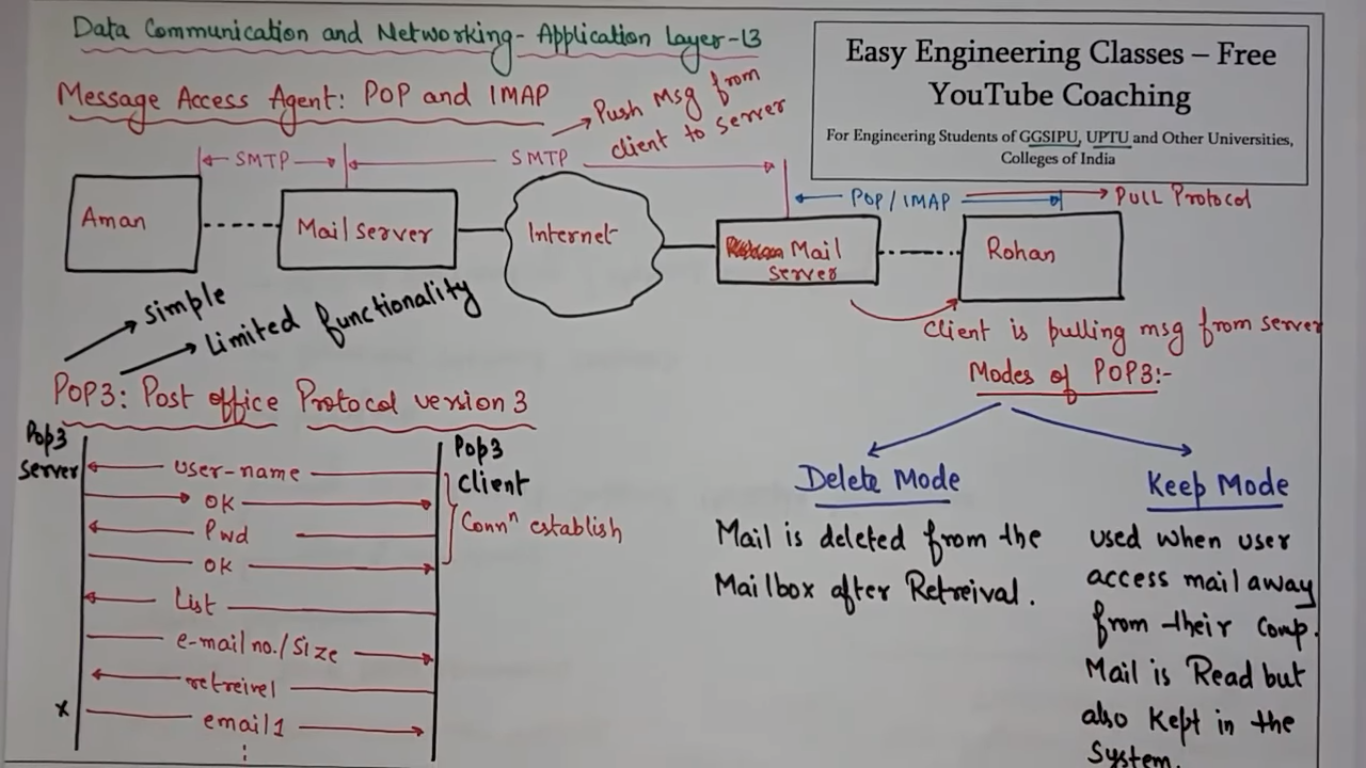 Data Communication and Networking- Application Layer-13
Easy Engineering Classes – Free
YouTube Coaching
For Engineering Students of GGSIPU, UPTU and Other Universities,
Colleges of India
Message Access Agent: POP and IMAP
Push Msg from
client to server
SMTP
SMTP
POP / IMAP
PULL Protocol
Aman
Mail server
Internet
Mail
server
Rohan
simple
Limited functionality
Client is pulling msg from server
POP3: Post office Protocol version 3
Pop3
server
Pop3
client
user-name
OK
Pwd
OK
Connⁿ establish
List
e-mail no./Size
retreivel
x
email1
⋮
Modes of POP3:-
Delete Mode
Mail is deleted from the
Mailbox after Retreival.
Keep Mode
used when user
access mail away
from their comp.
Mail is Read but
also Kept in the
System.